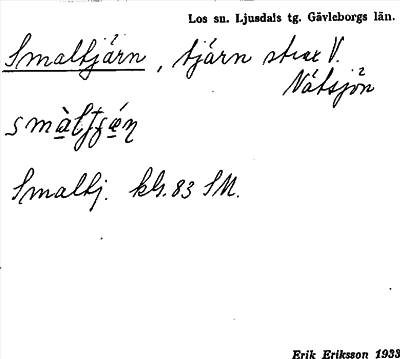 Los sn. Ljusdals tg. Gävleborgs län.
Smaltjärn, tjärn strax V.
Nätsjön
Smaltj. kbl. 83 SM.
Erik Eriksson 1933